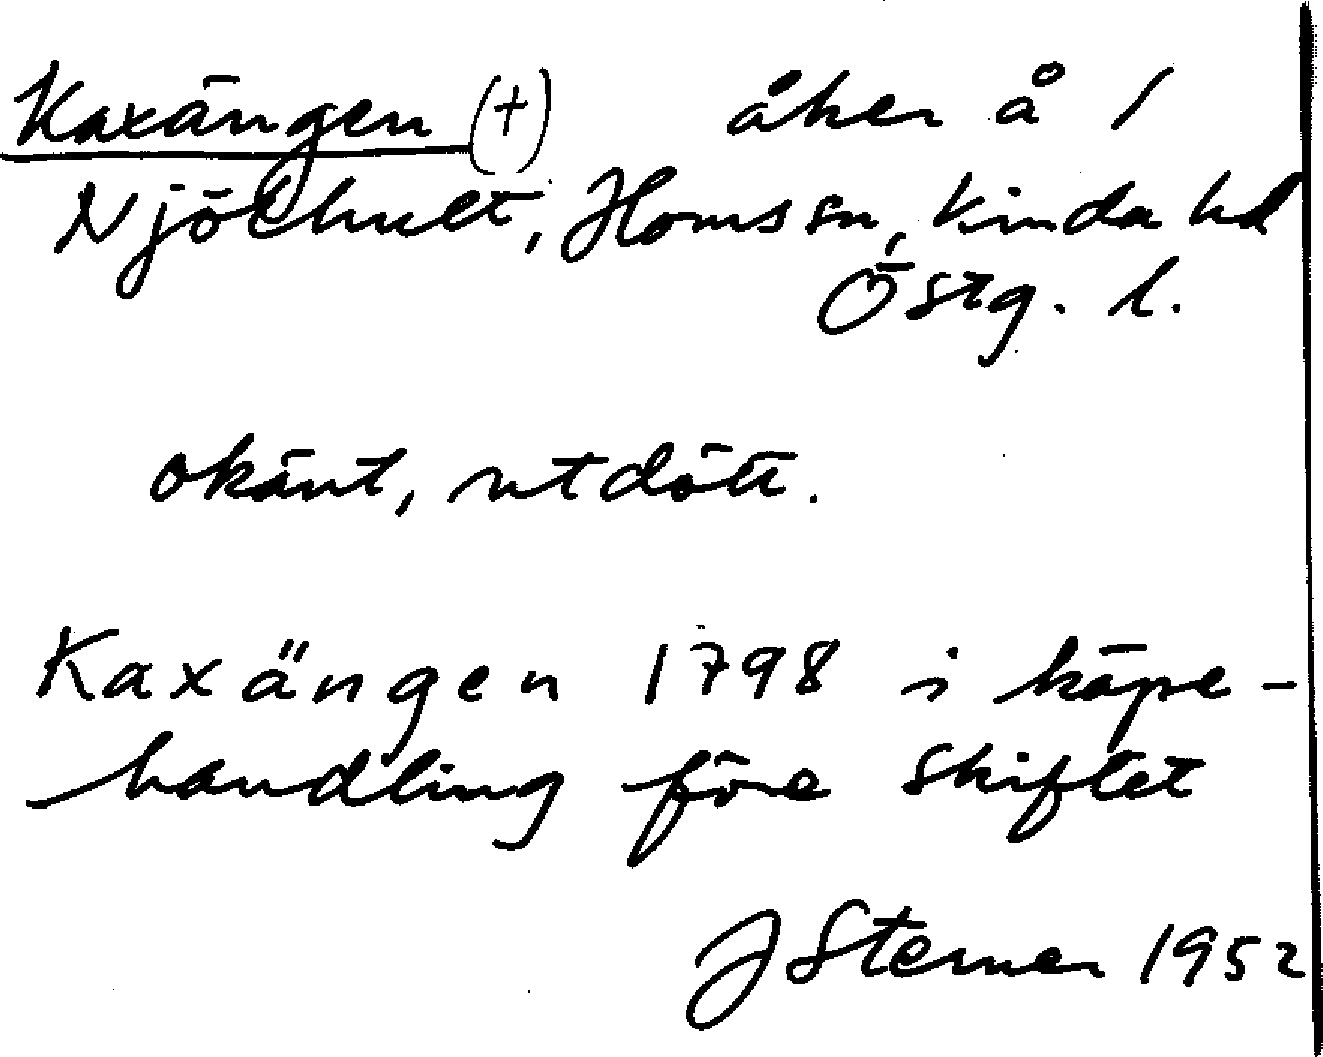 Kaxängen (+) åker å /
Njölhult, Homs sn, Kinda hd
Östg. l.
okänt, utdött.
Kaxängen 1798 i köpe-
handling före skiftet
J Sterner 1952